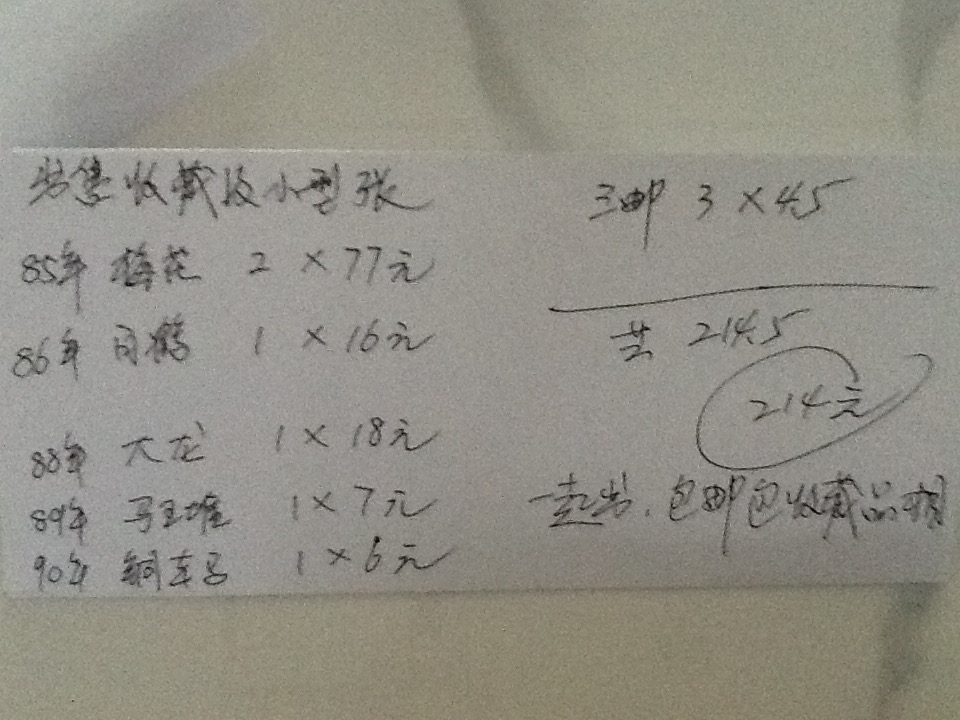 出售收藏级小型张
85年 梅花 2 × 77元
86年 白鹤 1 × 16元
88年 大龙 1 × 18元
89年 马王堆 1 × 7元
90年 铜车马 1 × 6元
三邮 3 × 4.5
共 214.5
214元
一起出.包邮包收藏品相